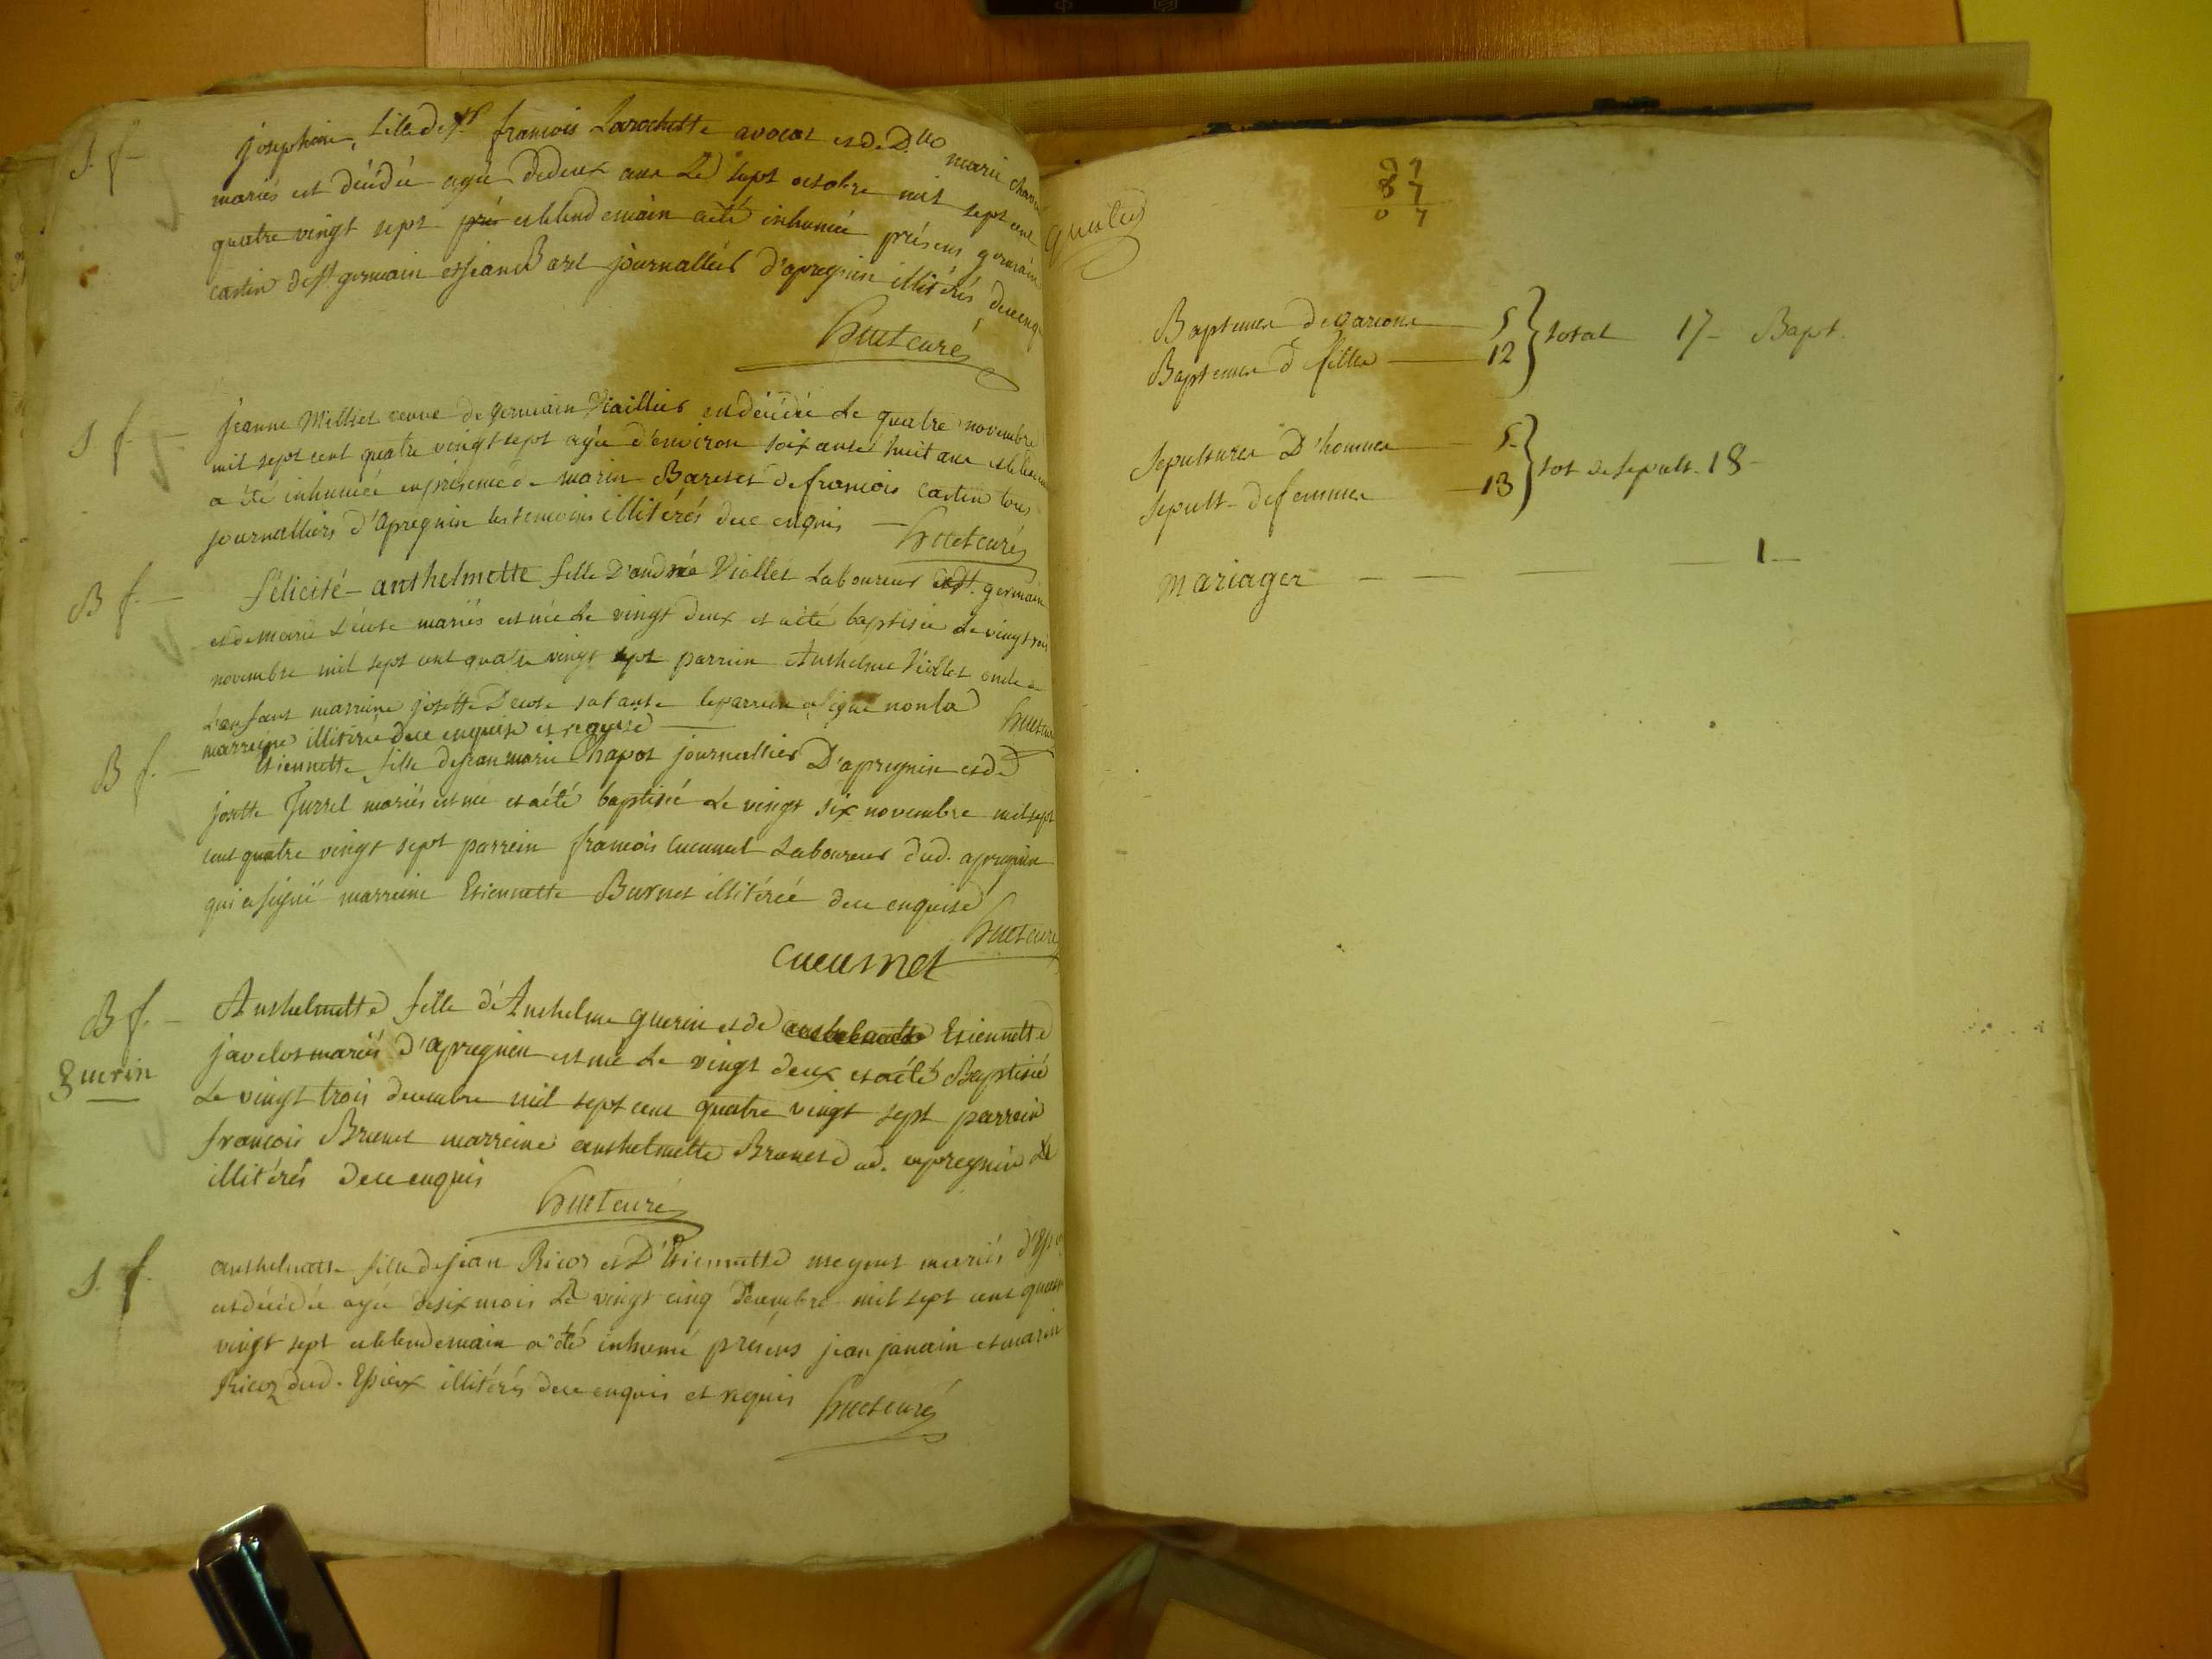 S. f. —
josephine, fille de Sr françois Larochette avocat et de Dlle marie
mariés est décédée agée de deux ans Le sept octobre mil sept cent
quatre vingt sept et le lendemain a été inhumée présens germain
castin de St germain et jean Baret journalliers d'apregnin illitérés de ce enq
huet curé
S. f. —
jeanne Milliet veuve de germain Viaillier est décédée Le quatre novembre
mil sept cent quatre vingt sept agée d'environ soixante huit ans et le
a été inhumée en présence de marin Baret et de francois castin tous
journalliers d'apregnin les temoins illitérés de ce enquis — huet curé
B f. —
félicité - anthelmette fille D'andré Viollet Laboureur de St. germain
et de marie Decote mariés est née Le vingt deux et a été baptisée Le vingt trois
novembre mil sept cent quatre vingt sept parrein Anthelme Viollet oncle de
L'enfant marreine josette Decote sa tante le parrein a signé non la
marreine illitérée de ce enquise et requise — huet curé
B f. —
Etiennette fille de jean marie Chapot journallier D'apregnin et de
josette Jurrel mariés est née et a été baptisée Le vingt six novembre mil sept
cent quatre vingt sept parrein francois cucumet Laboureur dud. apregnin
qui a signé marreine Etiennette Burnet illitérée de ce enquise
huet curé
cucumet
B f. —
guerin
Anthelmette fille d'Anthelme guerin et de Etiennette
javelot mariés d'apregnin est née Le vingt deux et a été Baptisée
Le vingt trois decembre mil sept cent quatre vingt sept parrein
francois Brunet marreine anthelmette Brunet dud. apregnin
illitérés de ce enquis
huet curé
S. f.
anthelmette fille de jean Ricoz et D'Etiennette meynet mariés
est décédée agée de six mois Le vingt cinq décembre mil sept cent quatre
vingt sept et le lendemain a été inhumé présens jean janin et marin
Ricoz dud. Essieux illitérés de ce enquis et requis huet curé
Baptemes de garcons — 5
Baptemes de filles — 12 } total 17 — Bapt.
Sepultures D'hommes — 5
Sepult — de femmes — 13 } tot de sepult. 18 —
Mariages — — — — 1 —